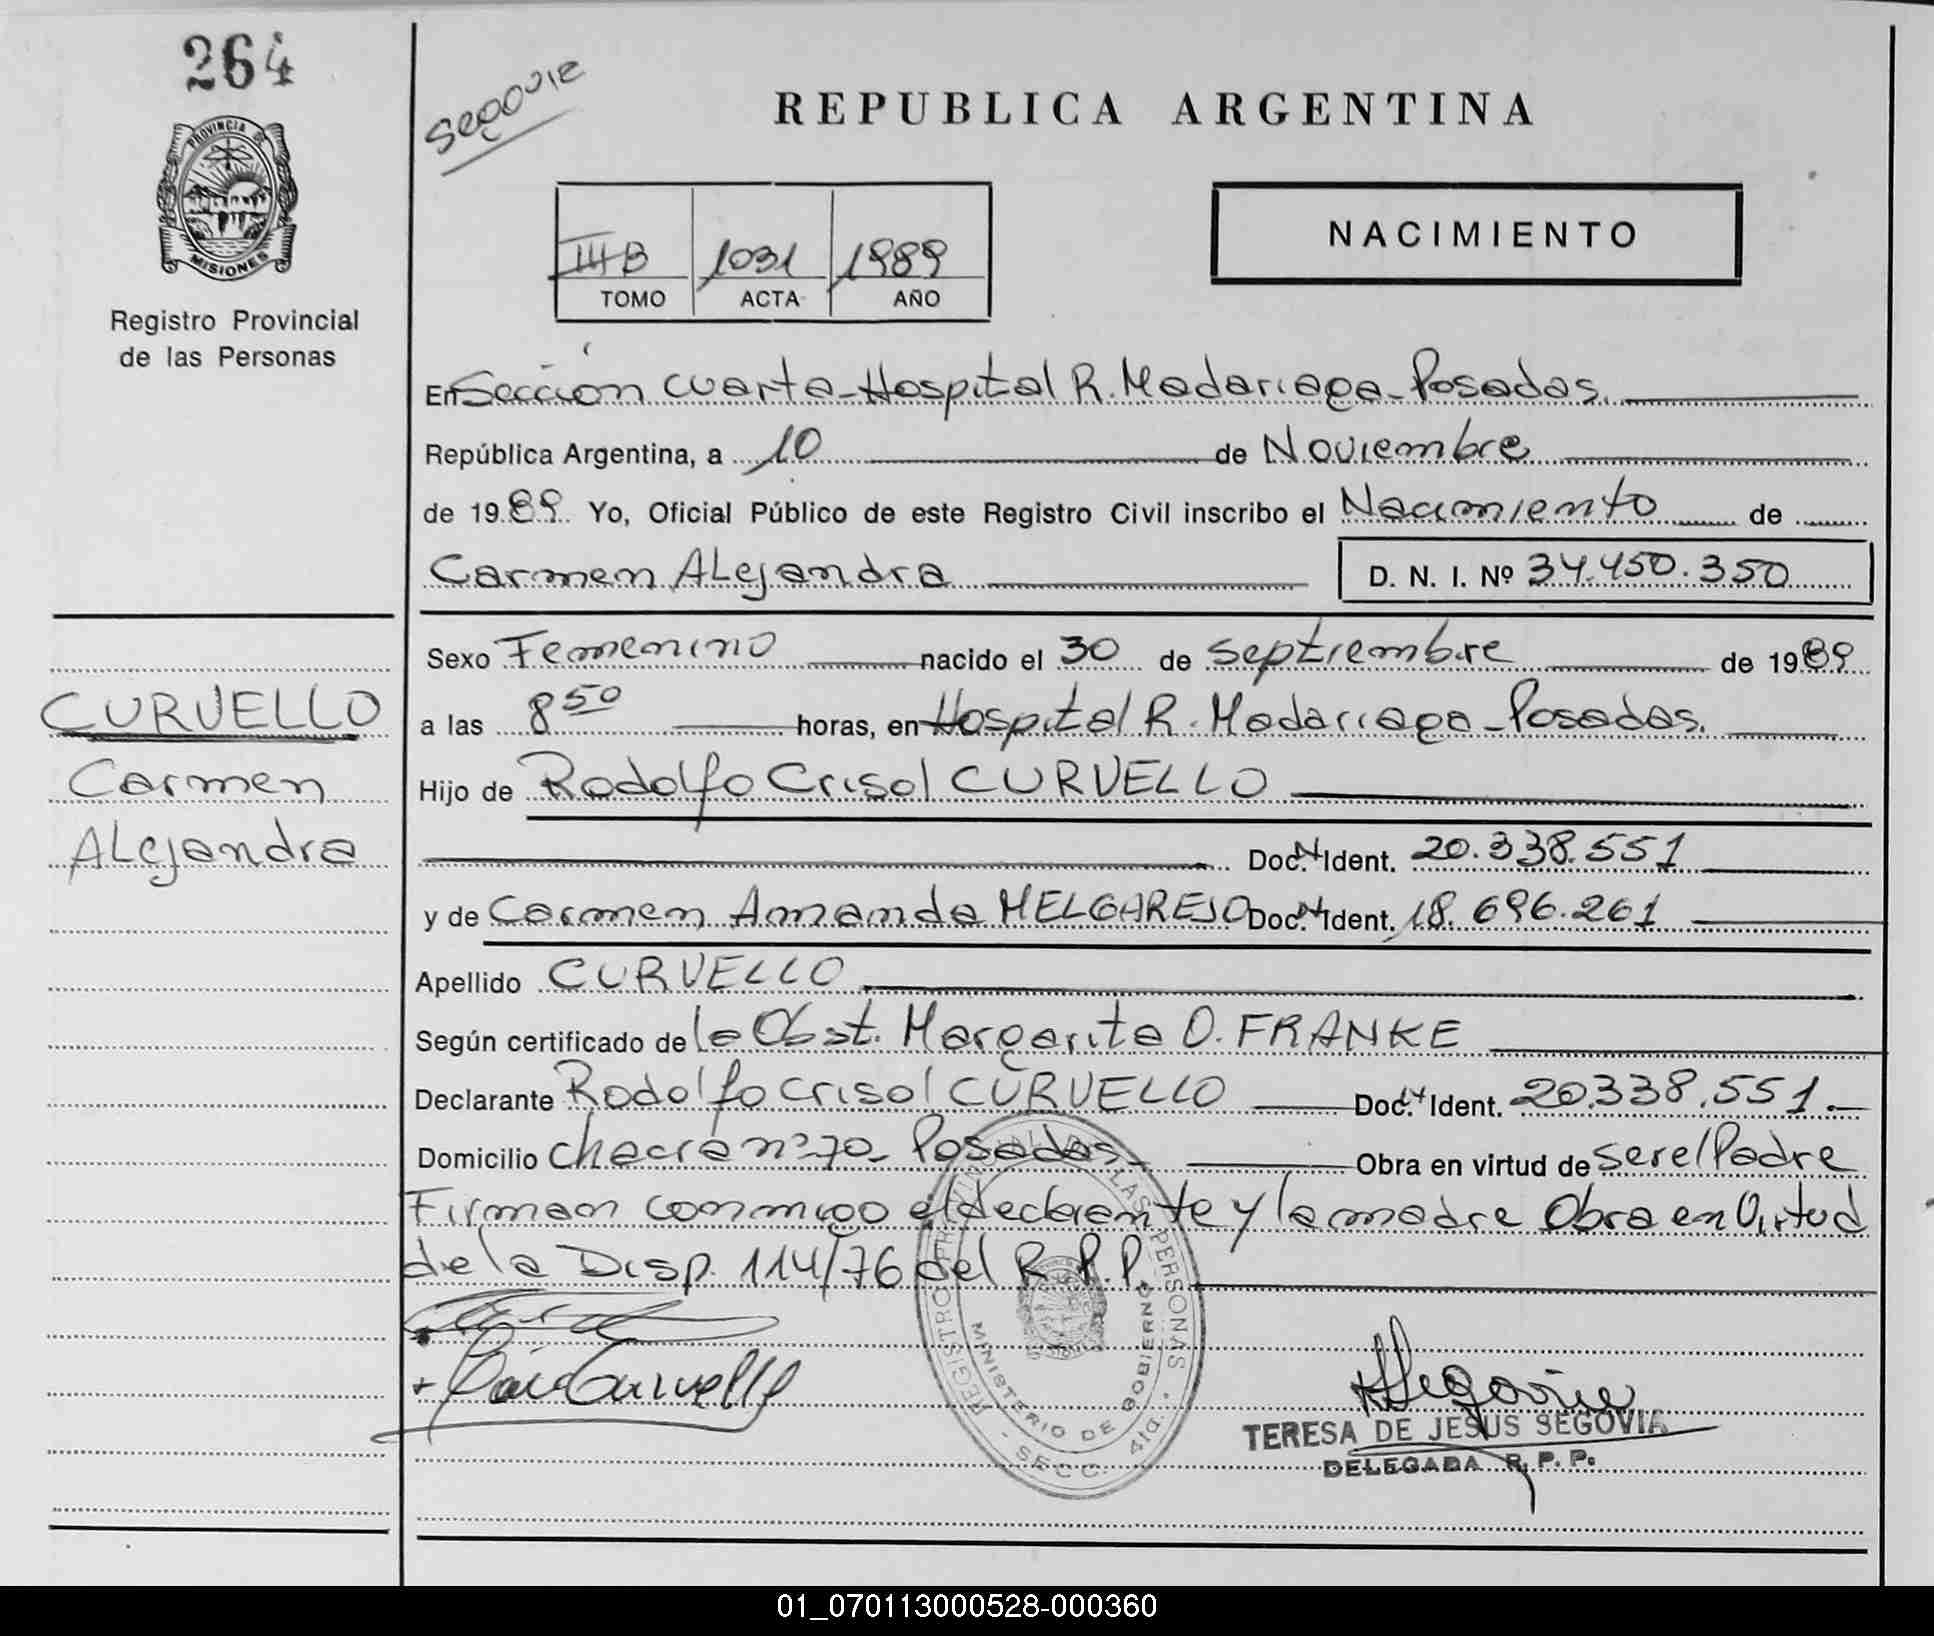 264
PROVINCIA DE
MISIONES
Registro Provincial
de las Personas
CURVELLO
Carmen
Alejandra
Segovia
REPUBLICA ARGENTINA
III B 1031 1989
TOMO ACTA AÑO
NACIMIENTO
En Sección cuarta-Hospital R. Madariaga-Posadas.
República Argentina, a 10 de Noviembre
de 1989. Yo, Oficial Público de este Registro Civil inscribo el Nacimiento de
Carmen Alejandra D. N. I. Nº 34.450.350
Sexo Femenino nacido el 30 de septiembre de 1989
a las 8 50 horas, en Hospital R. Madariaga-Posadas.
Hijo de Rodolfo Crisol CURVELLO
Doc. N Ident. 20.338.551
y de Carmen Amanda MELGAREJO Doc. N Ident. 18.696.261
Apellido CURVELLO
Según certificado de la Obst. Margarita O. FRANKE
Declarante Rodolfo Crisol CURVELLO Doc. N Ident. 20.338.551.
Domicilio chacra nº 70- Posadas- Obra en virtud de ser el Padre
Firman conmigo el declarante y la madre Obra en Virtud
de la Disp. 114/76 del R.P.P.
Curvello
Segovia
TERESA DE JESUS SEGOVIA
DELEGADA R. P. P.
REGISTRO PROVINCIAL DE LAS PERSONAS
MINISTERIO DE GOBIERNO
- SECC. 4ta. -
01_070113000528-000360